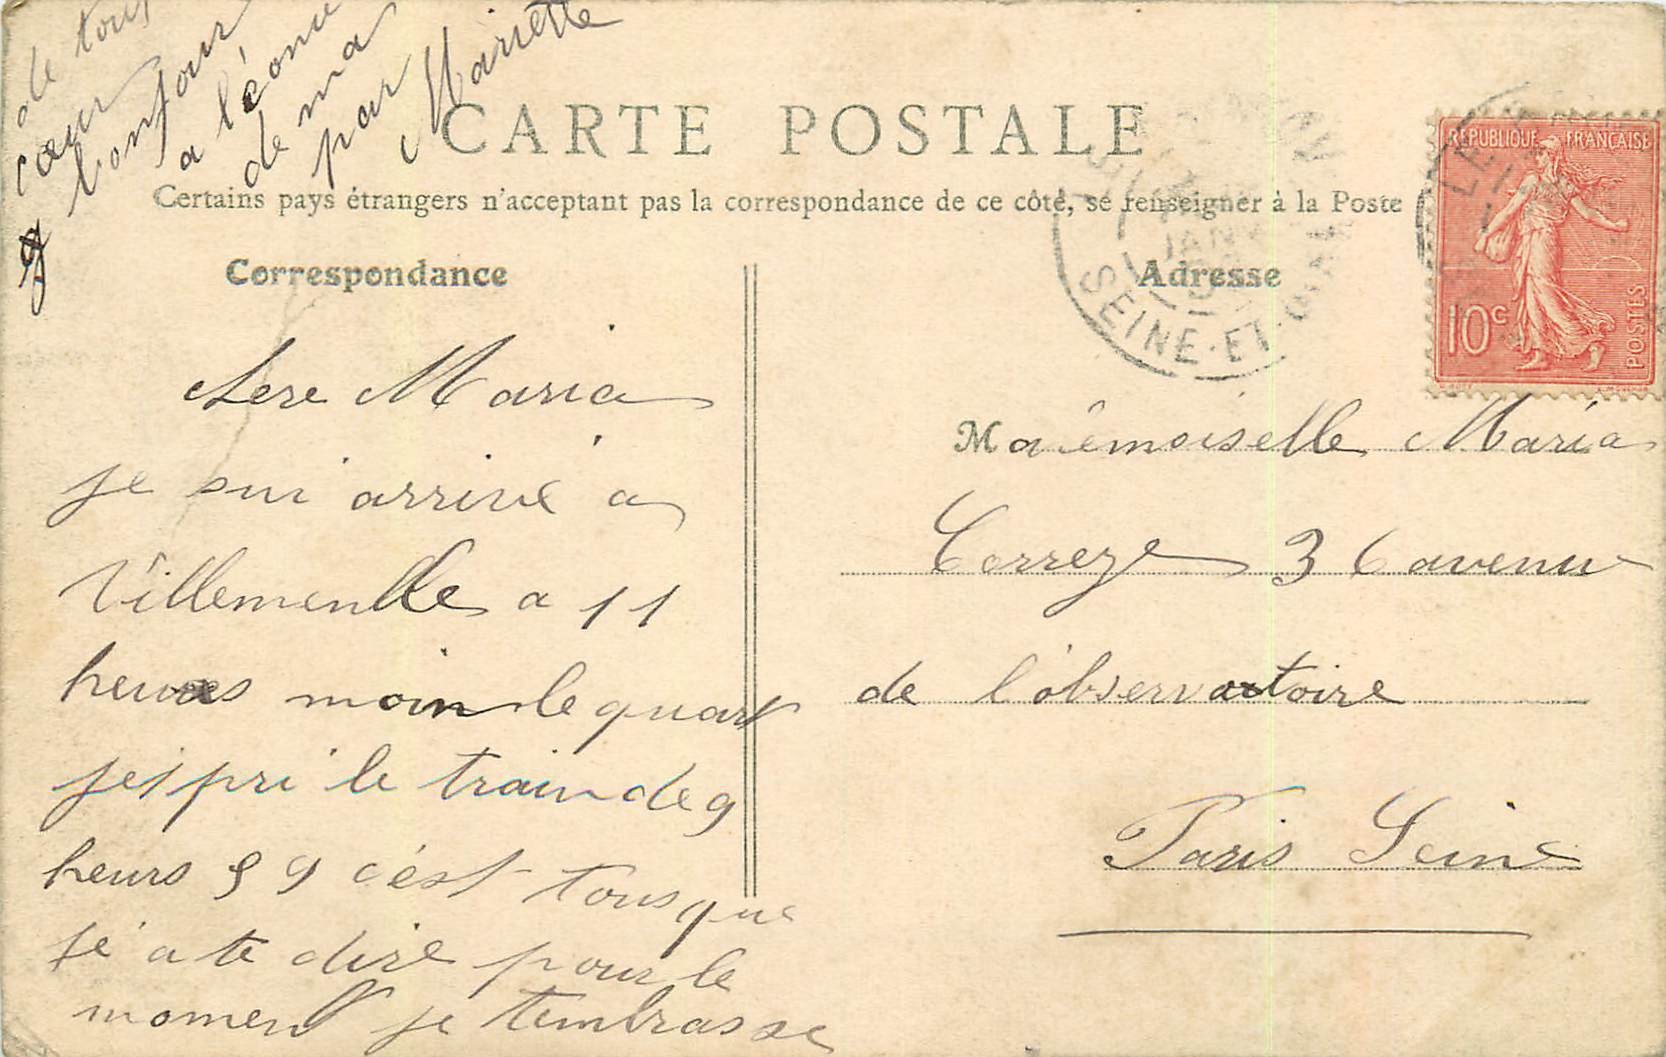 de tous
cœur
bonjour
a léonie
de ma
par
Mariette
CARTE POSTALE
Certains pays étrangers n'acceptent pas la correspondance de ce côté, se renseigner à la Poste
Correspondance
chere Maria
je sui arrivé a
Villemeulle a 11
heures moin le quart
jespri le train de 9
heurs 59 c'ést tous que
je a te dire pour le
moment je tembrasse
Adresse
Mademoiselle Maria
Correze 36 avenue
de l'observatoire
Paris Seine
REPUBLIQUE FRANÇAISE
10c
POSTES
JANV
SEINE-ET-OISE